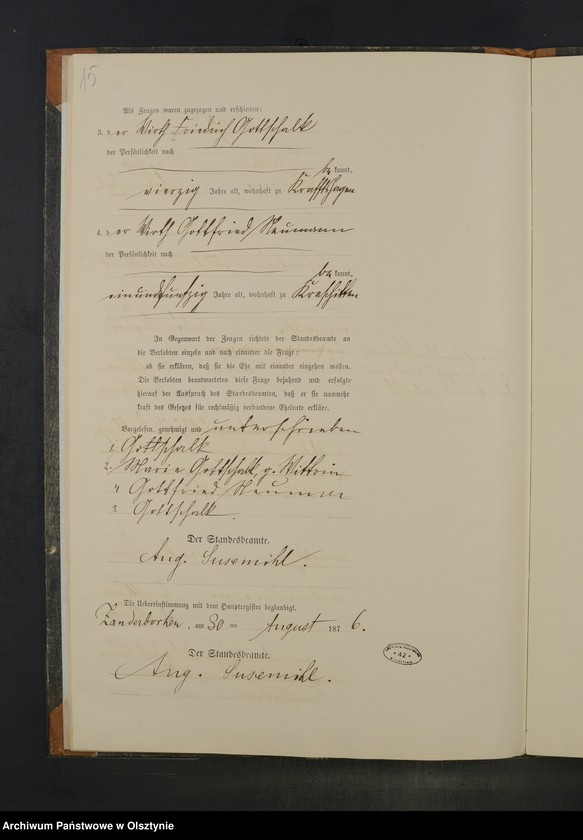 15
Als Zeugen waren zugezogen und erschienen:
3. der Wirth Friedrich Gottschalk
der Persönlichkeit nach
be kannt,
vierzig Jahre alt, wohnhaft zu Kraftshagen
4. der Wirth Gottfried Neumann
der Persönlichkeit nach
be kannt,
einundfunfzig Jahre alt, wohnhaft zu
In Gegenwart der Zeugen richtete der Standesbeamte an
die Verlobten einzeln und nach einander die Frage:
ob sie erklären, daß sie die Ehe mit einander eingehen wollen.
Die Verlobten beantworteten diese Frage bejahend und erfolgte
hierauf der Ausspruch des Standesbeamten, daß er sie nunmehr
kraft des Gesetzes für rechtmäßig verbundene Eheleute erkläre.
Vorgelesen, genehmigt und unterschrieben
1. Gottschalk
2. Marie Gottschalk, g. Wittrin
4 Gottfried Neuman
3 Gottschalk
Der Standesbeamte.
Aug. Susemihl.
Die Uebereinstimmung mit dem Hauptregister beglaubigt.
Zanderborken, am 30 ten August 187 6.
Der Standesbeamte.
Aug. Susemihl.
Archiwum Państwowe w Olsztynie